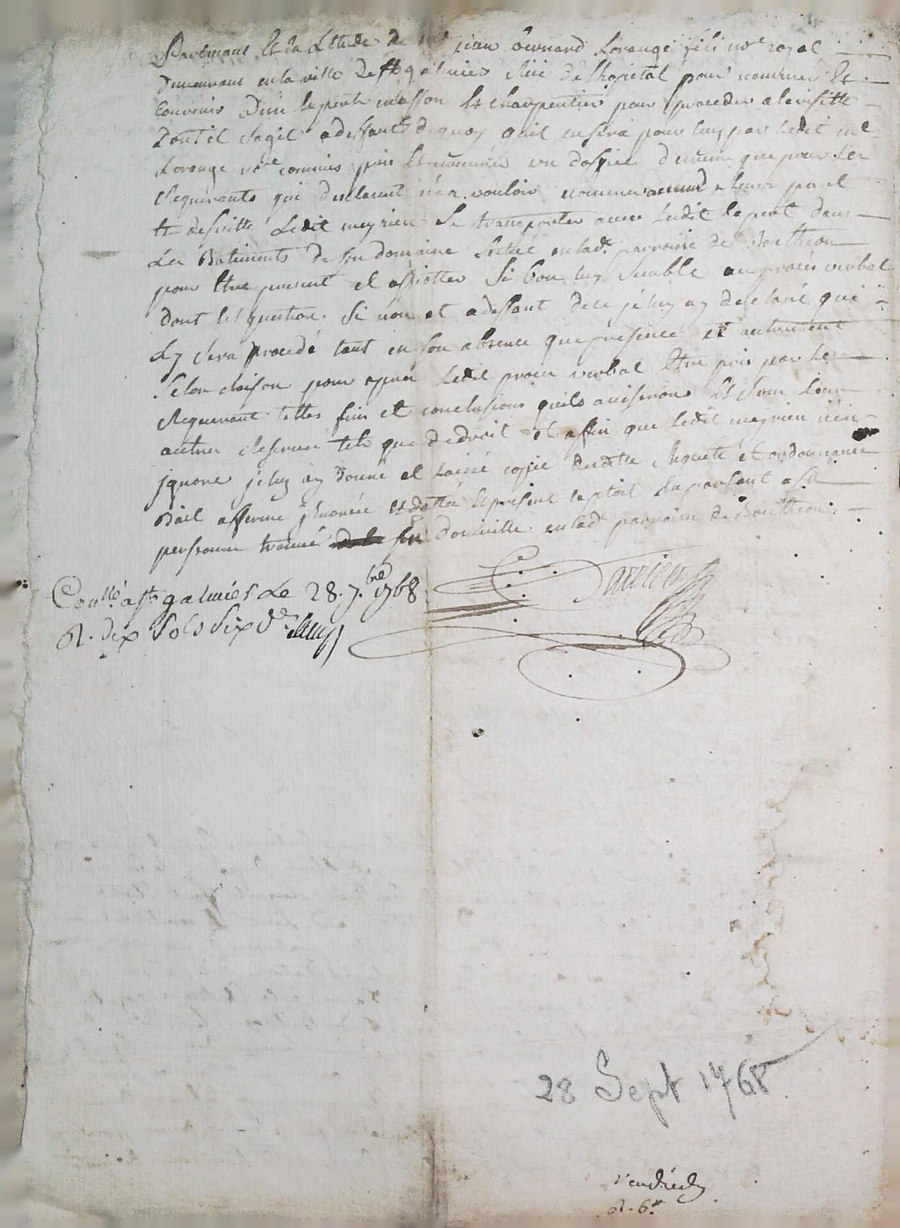 et en l'Etude de me jean bernard Lorange fils nore royal
demeurant en la ville de St galmier Rue de l'hopital pour nommer et
convenir d'un expert masson et charpentier pour proceder a la visitte
dont il sagit a deffaut de quoy quil en sera pour luy par ledit me
Lorange nore commis pris et nommé un d'office de meme que pour les
Requerants qui declarent n'en vouloir nommer aucun
ledit meyrieu se transporter avec ledit expert dans
Les Batiments de son domaine scitué en lade parroisse de Bouthéon
pour être present et assister si bon luy semble au procés verbal
dont est question. Si non et a deffaut de ce je luy ay declaré qui
Ly sera procedé tant en son absence que presence et autrement
selon raison pour aprés ledit procés verbal être pris par les
Requerant telles fins et conclusions quils aviseront et sous leurs
autres Reserves tels que de droit et affin que ledit meyrieu n'en
jgnore je luy ay donné et laissé copie de Requete et ordonnance
Bail afferme et dattée et present exploit en parlant a sa
personne trouvé en son domicille en lade parroisse de Bouthéon.
Conllé a St galmier Le 28. 7.bre 1768
R. dix sols six drs
28 Sept 1768